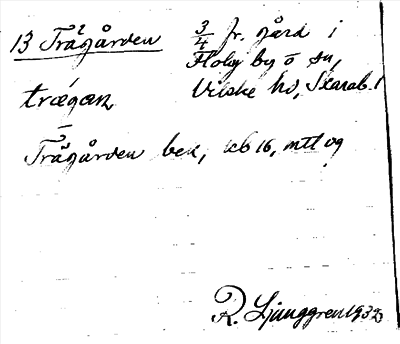 13 Trägården 3/4 fr. gård i
Floby by o sn,
trǽgan Vilske hd, Skarab. l
Trägården bek, kb 16, mtl og
R. Ljunggren 1932